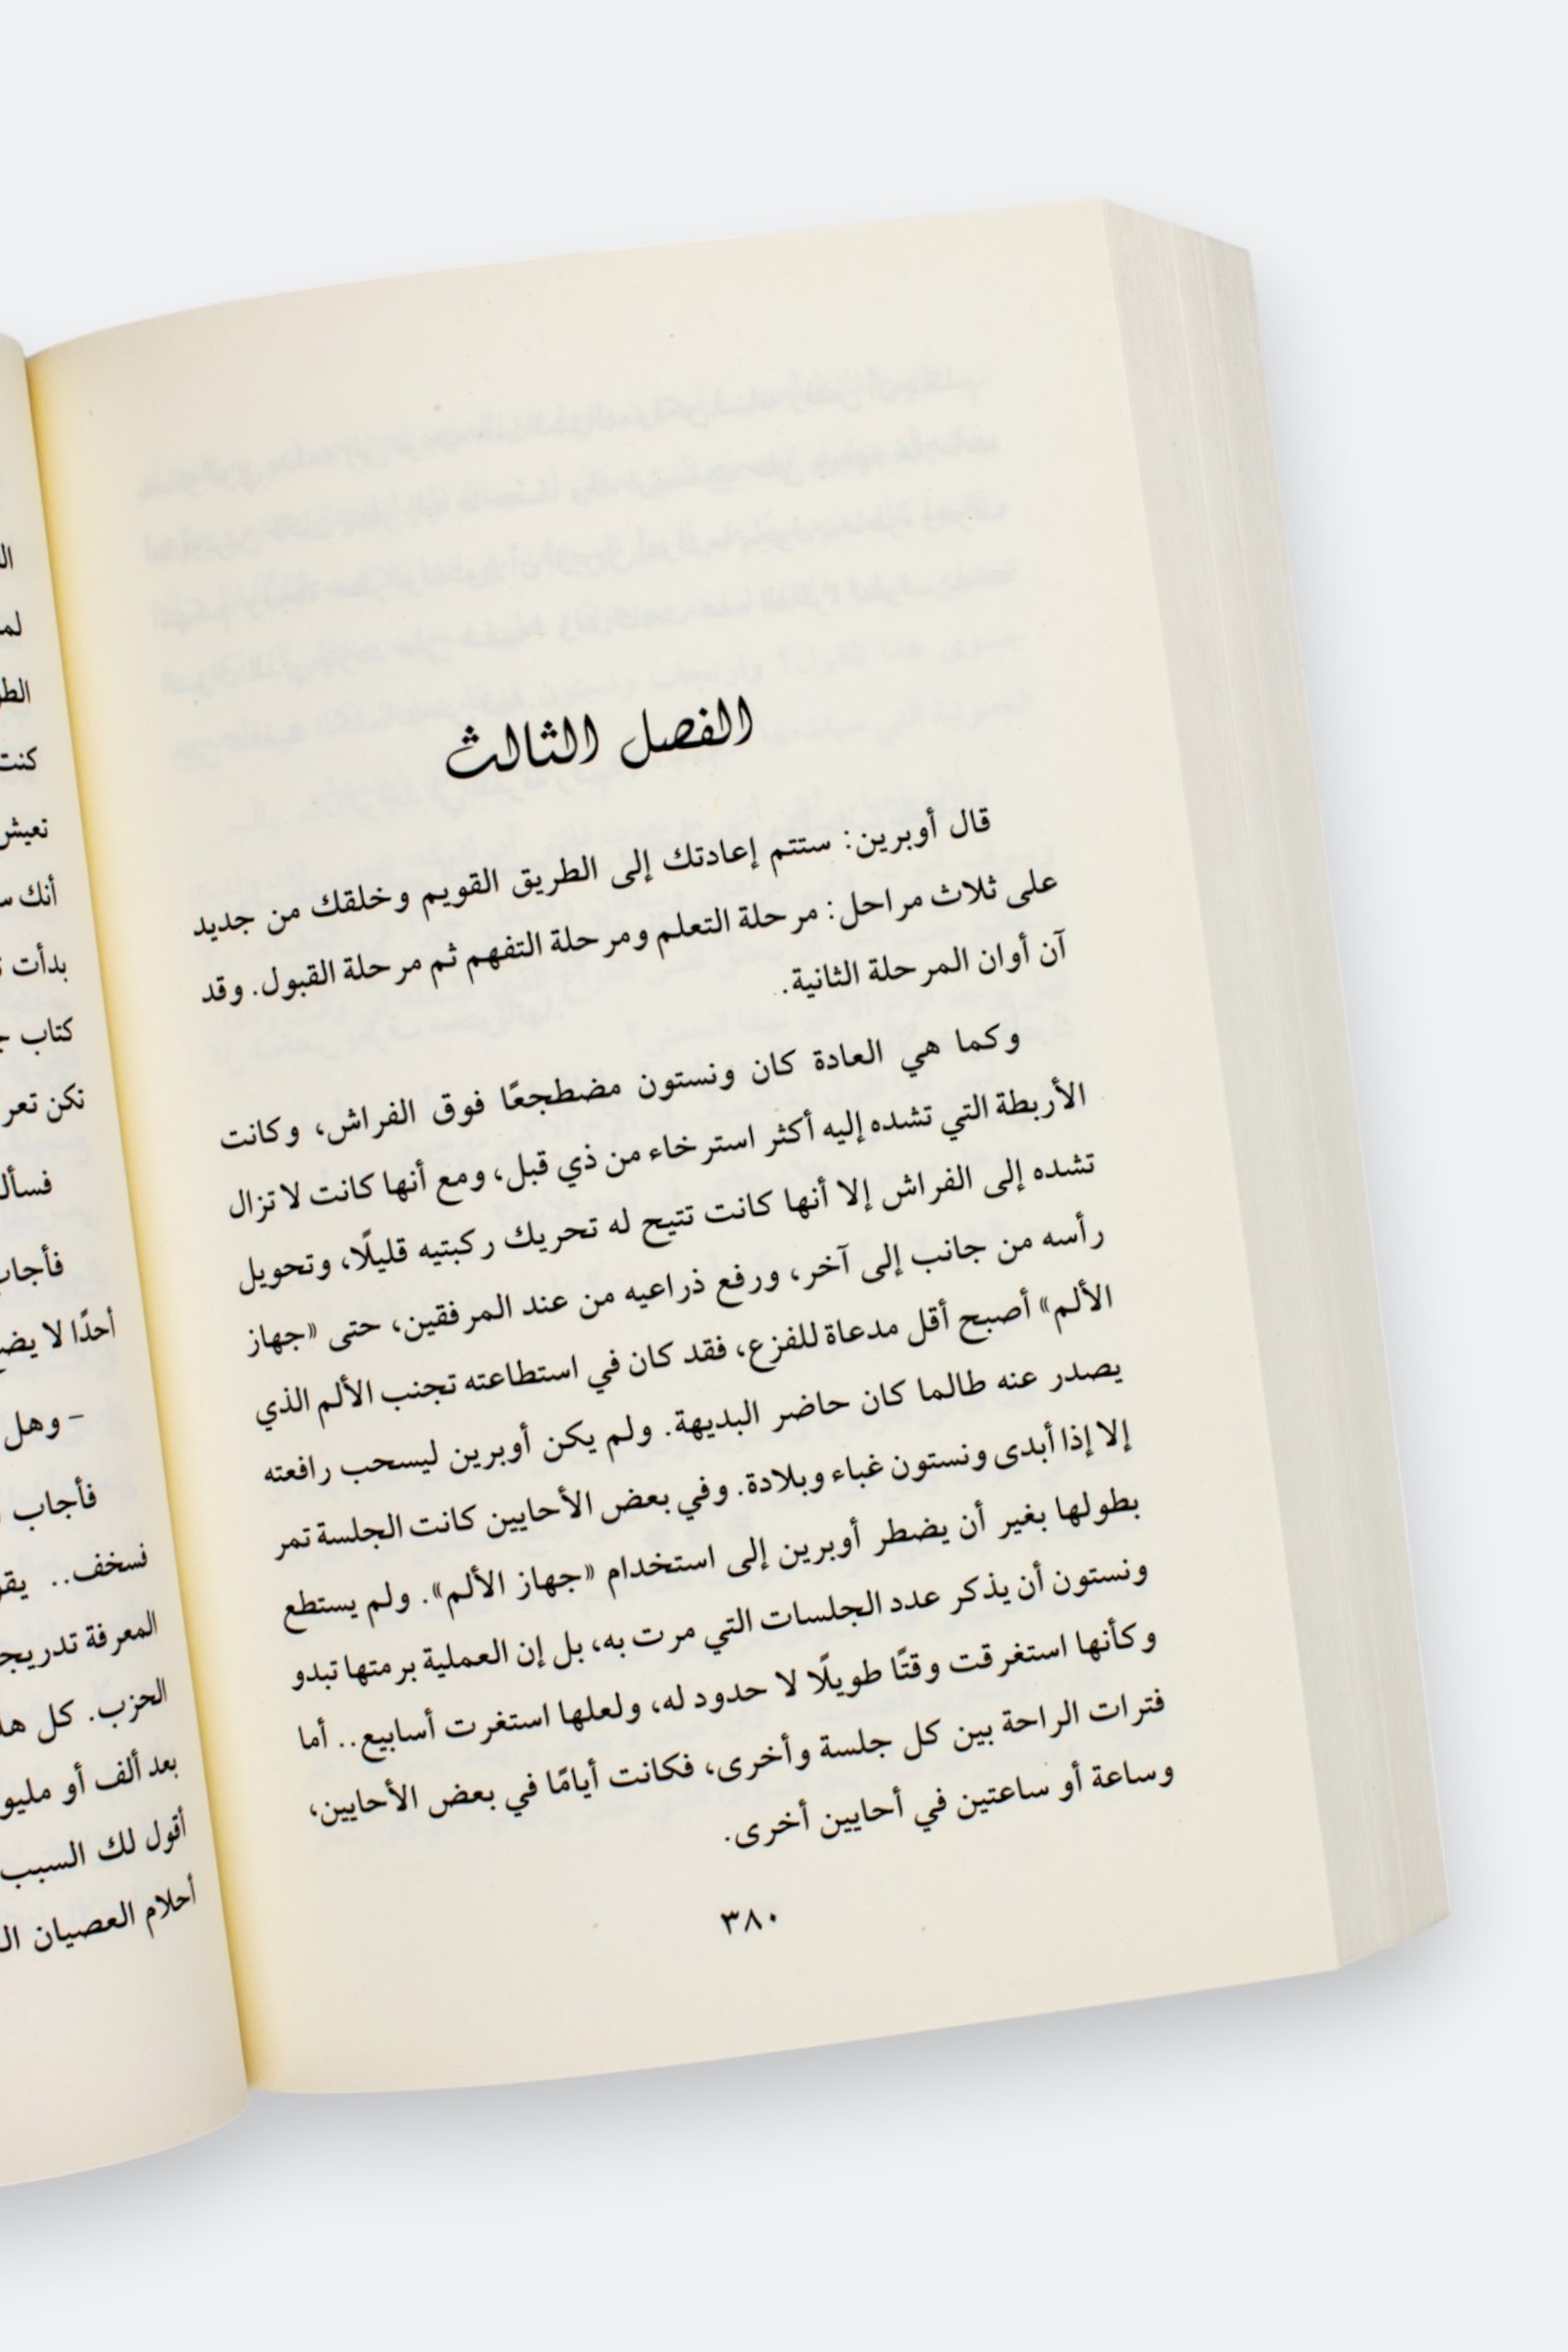 الفصل الثالث
قال أوبرين: ستتم إعادتك إلى الطريق القويم وخلقك من جديد
على ثلاث مراحل: مرحلة التعلم ومرحلة التفهم ثم مرحلة القبول. وقد
آن أوان المرحلة الثانية.
وكما هي العادة كان ونستون مضطجعًا فوق الفراش، وكانت
الأربطة التي تشده إليه أكثر استرخاء من ذي قبل، ومع أنها كانت لا تزال
تشده إلى الفراش إلا أنها كانت تتيح له تحريك ركبتيه قليلًا، وتحويل
رأسه من جانب إلى آخر، ورفع ذراعيه من عند المرفقين، حتى «جهاز
الألم» أصبح أقل مدعاة للفزع، فقد كان في استطاعته تجنب الألم الذي
يصدر عنه طالما كان حاضر البديهة. ولم يكن أوبرين ليسحب رافعته
إلا إذا أبدى ونستون غباء وبلادة. وفي بعض الأحايين كانت الجلسة تمر
بطولها بغير أن يضطر أوبرين إلى استخدام «جهاز الألم». ولم يستطع
ونستون أن يذكر عدد الجلسات التي مرت به، بل إن العملية برمتها تبدو
وكأنها استغرقت وقتًا طويلًا لا حدود له، ولعلها استغرت أسابيع.. أما
فترات الراحة بين كل جلسة وأخرى، فكانت أيامًا في بعض الأحايين،
وساعة أو ساعتين في أحايين أخرى.
٣٨٠
كنت
تعيش
أنك
بدأت
كتاب
تكن
أحدًا لا
– وهل
فأجاب
فسخف..
المعرفة
الحزب. كل
بعد ألف أو
أقول لك السبب
أحلام العصيان